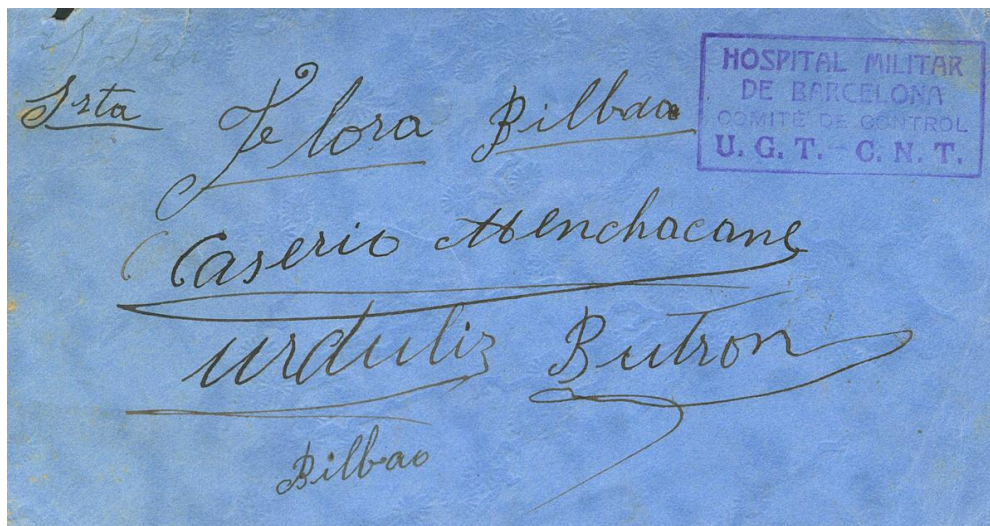 HOSPITAL MILITAR
DE BARCELONA
COMITÉ DE CONTROL
U. G. T. - C. N. T.
Srta Flora Bilbao
Caserio Menchacane
Urduliz Butron
Bilbao